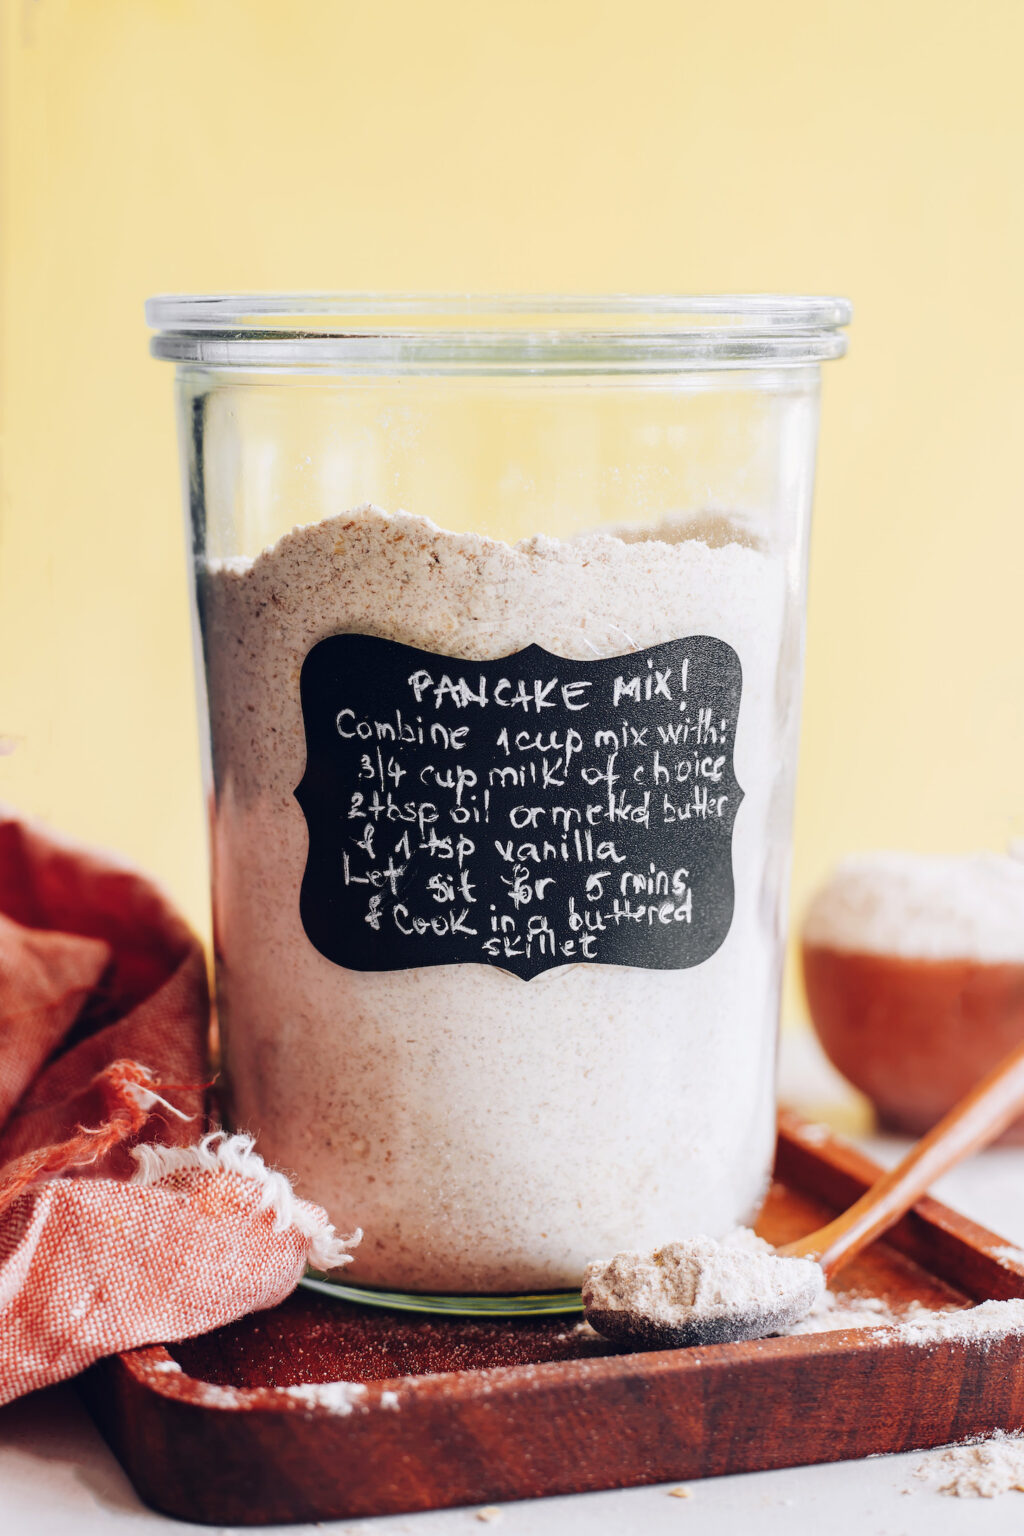 PANCAKE MIX!
Combine 1 cup mix with:
3/4 cup milk of choice
2 tbsp oil or melted butter
& 1 tsp vanilla
Let sit for 5 mins
& Cook in a buttered
skillet